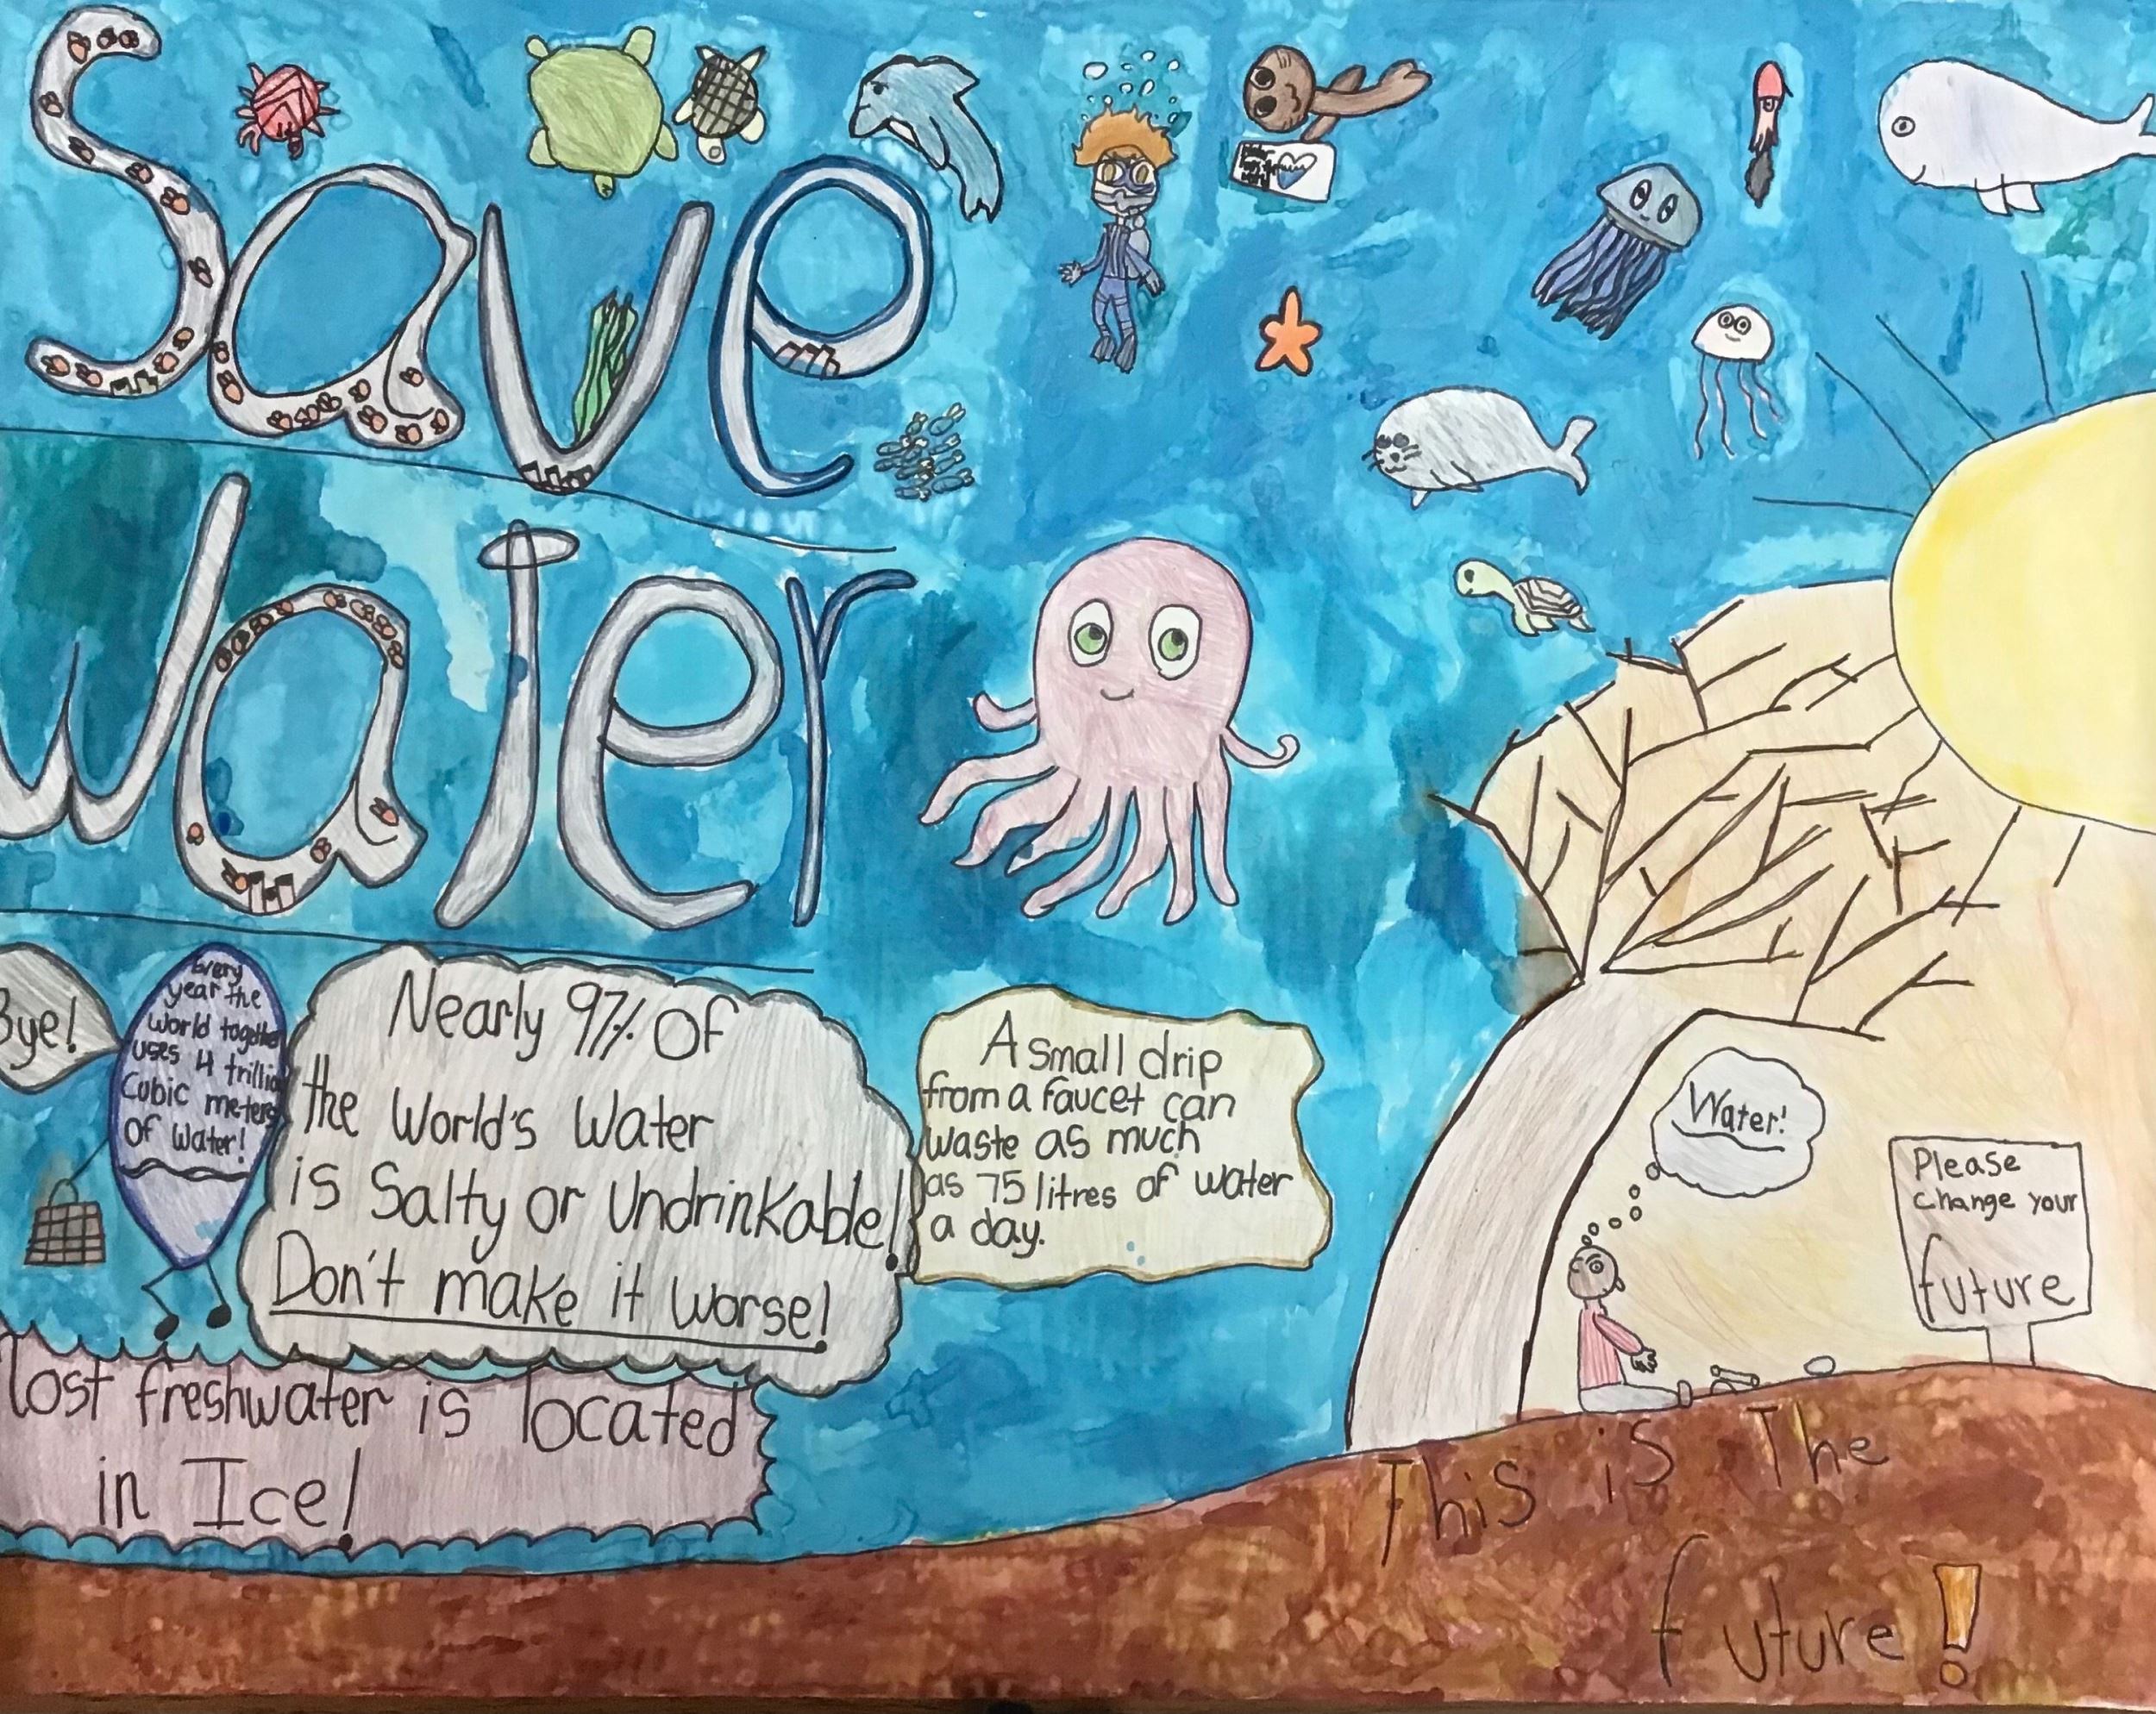 Save
Water
Bye!
Every
year the
World together
uses 4 trillion
Cubic meters
Of Water!
Nearly 97% Of
the World's Water
is Salty or Undrinkable!
Don't make it Worse!
A small drip
from a faucet can
waste as much
as 75 litres of water
a day.
Water!
Please
Change your
future
lost freshwater is located
in Ice!
This is The
future!